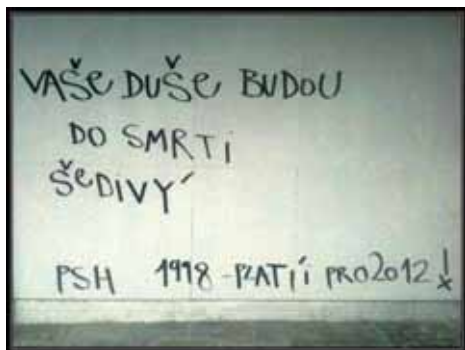 VAŠE DUŠE BUDOU
DO SMRTI
ŠEDIVÝ
PSH 1998 - PLATÍ PRO 2012!